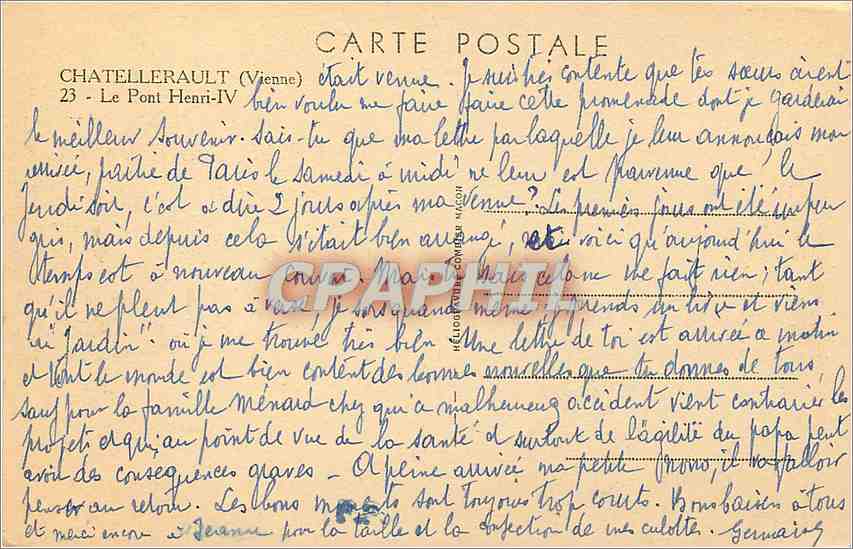 CARTE POSTALE
CHATELLERAULT (Vienne)
23 - Le Pont Henri-IV
était venue. Je suis très contente que tes sœurs aient
bien voulu me faire faire cette promenade dont je garderai
le meilleur souvenir. Sais-tu que ma lettre par laquelle je leur annonçais mon
arrivée, partie de Paris le samedi à midi ne leur est parvenue que le
Jeudi soir, c'est à dire 2 jours après ma venue? Les premiers jours ont été un peu
gris, mais depuis cela s'était bien arrangé, et voici qu'aujourd'hui le
temps est à nouveau couvert. Mais tu sais cela ne me fait rien; tant
qu'il ne pleut pas à verse, je sors quand même, je prends un livre et viens
au "Jardin" où je me trouve très bien. Une lettre de toi est arrivée ce matin
et tout le monde est bien content des bonnes nouvelles que tu donnes de tous,
sauf pour la famille Ménard chez qui ce malheureux accident vient contrarier les
projets et qui au point de vue de la santé et surtout de l'agilité du papa peut
avoir des conséquences graves - A peine arrivée ma petite Mono, il va falloir
penser au retour. Les bons moments sont toujours trop courts. Bons baisers à tous
et merci encore à Jeanne pour la taille et la confection de mes culottes. Germaine
HÉLIOGRAVURE COMBIER MACON
CPARHIL